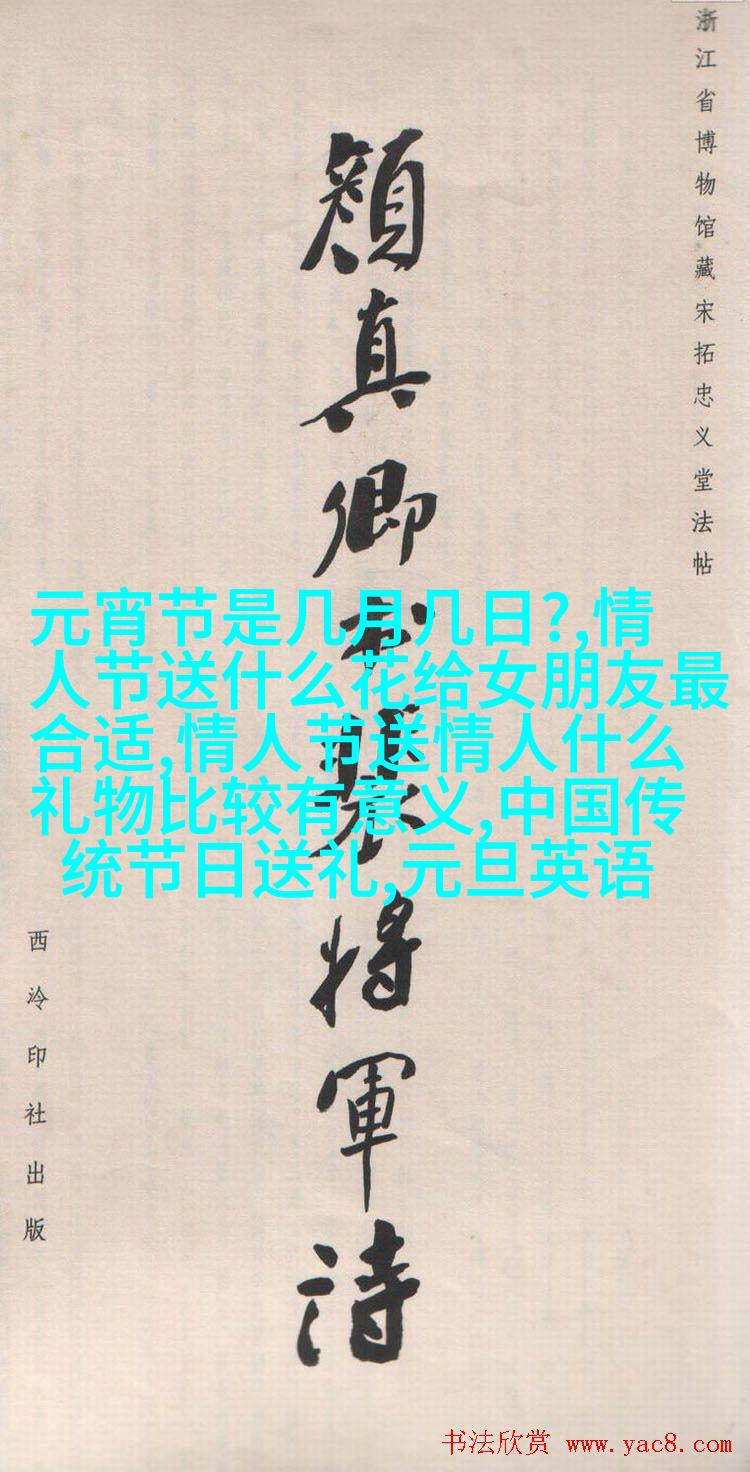 浙江省博物馆藏宋拓忠义堂法帖
顔真卿书裴将軍诗
元宵节是几月几日?,情
人节送什么花给女朋友最
合适,情人节送情人什么
礼物比较有意义,中国传
统节日送礼,元旦英语
西泠印社出版
书法欣赏 www.yac8.com